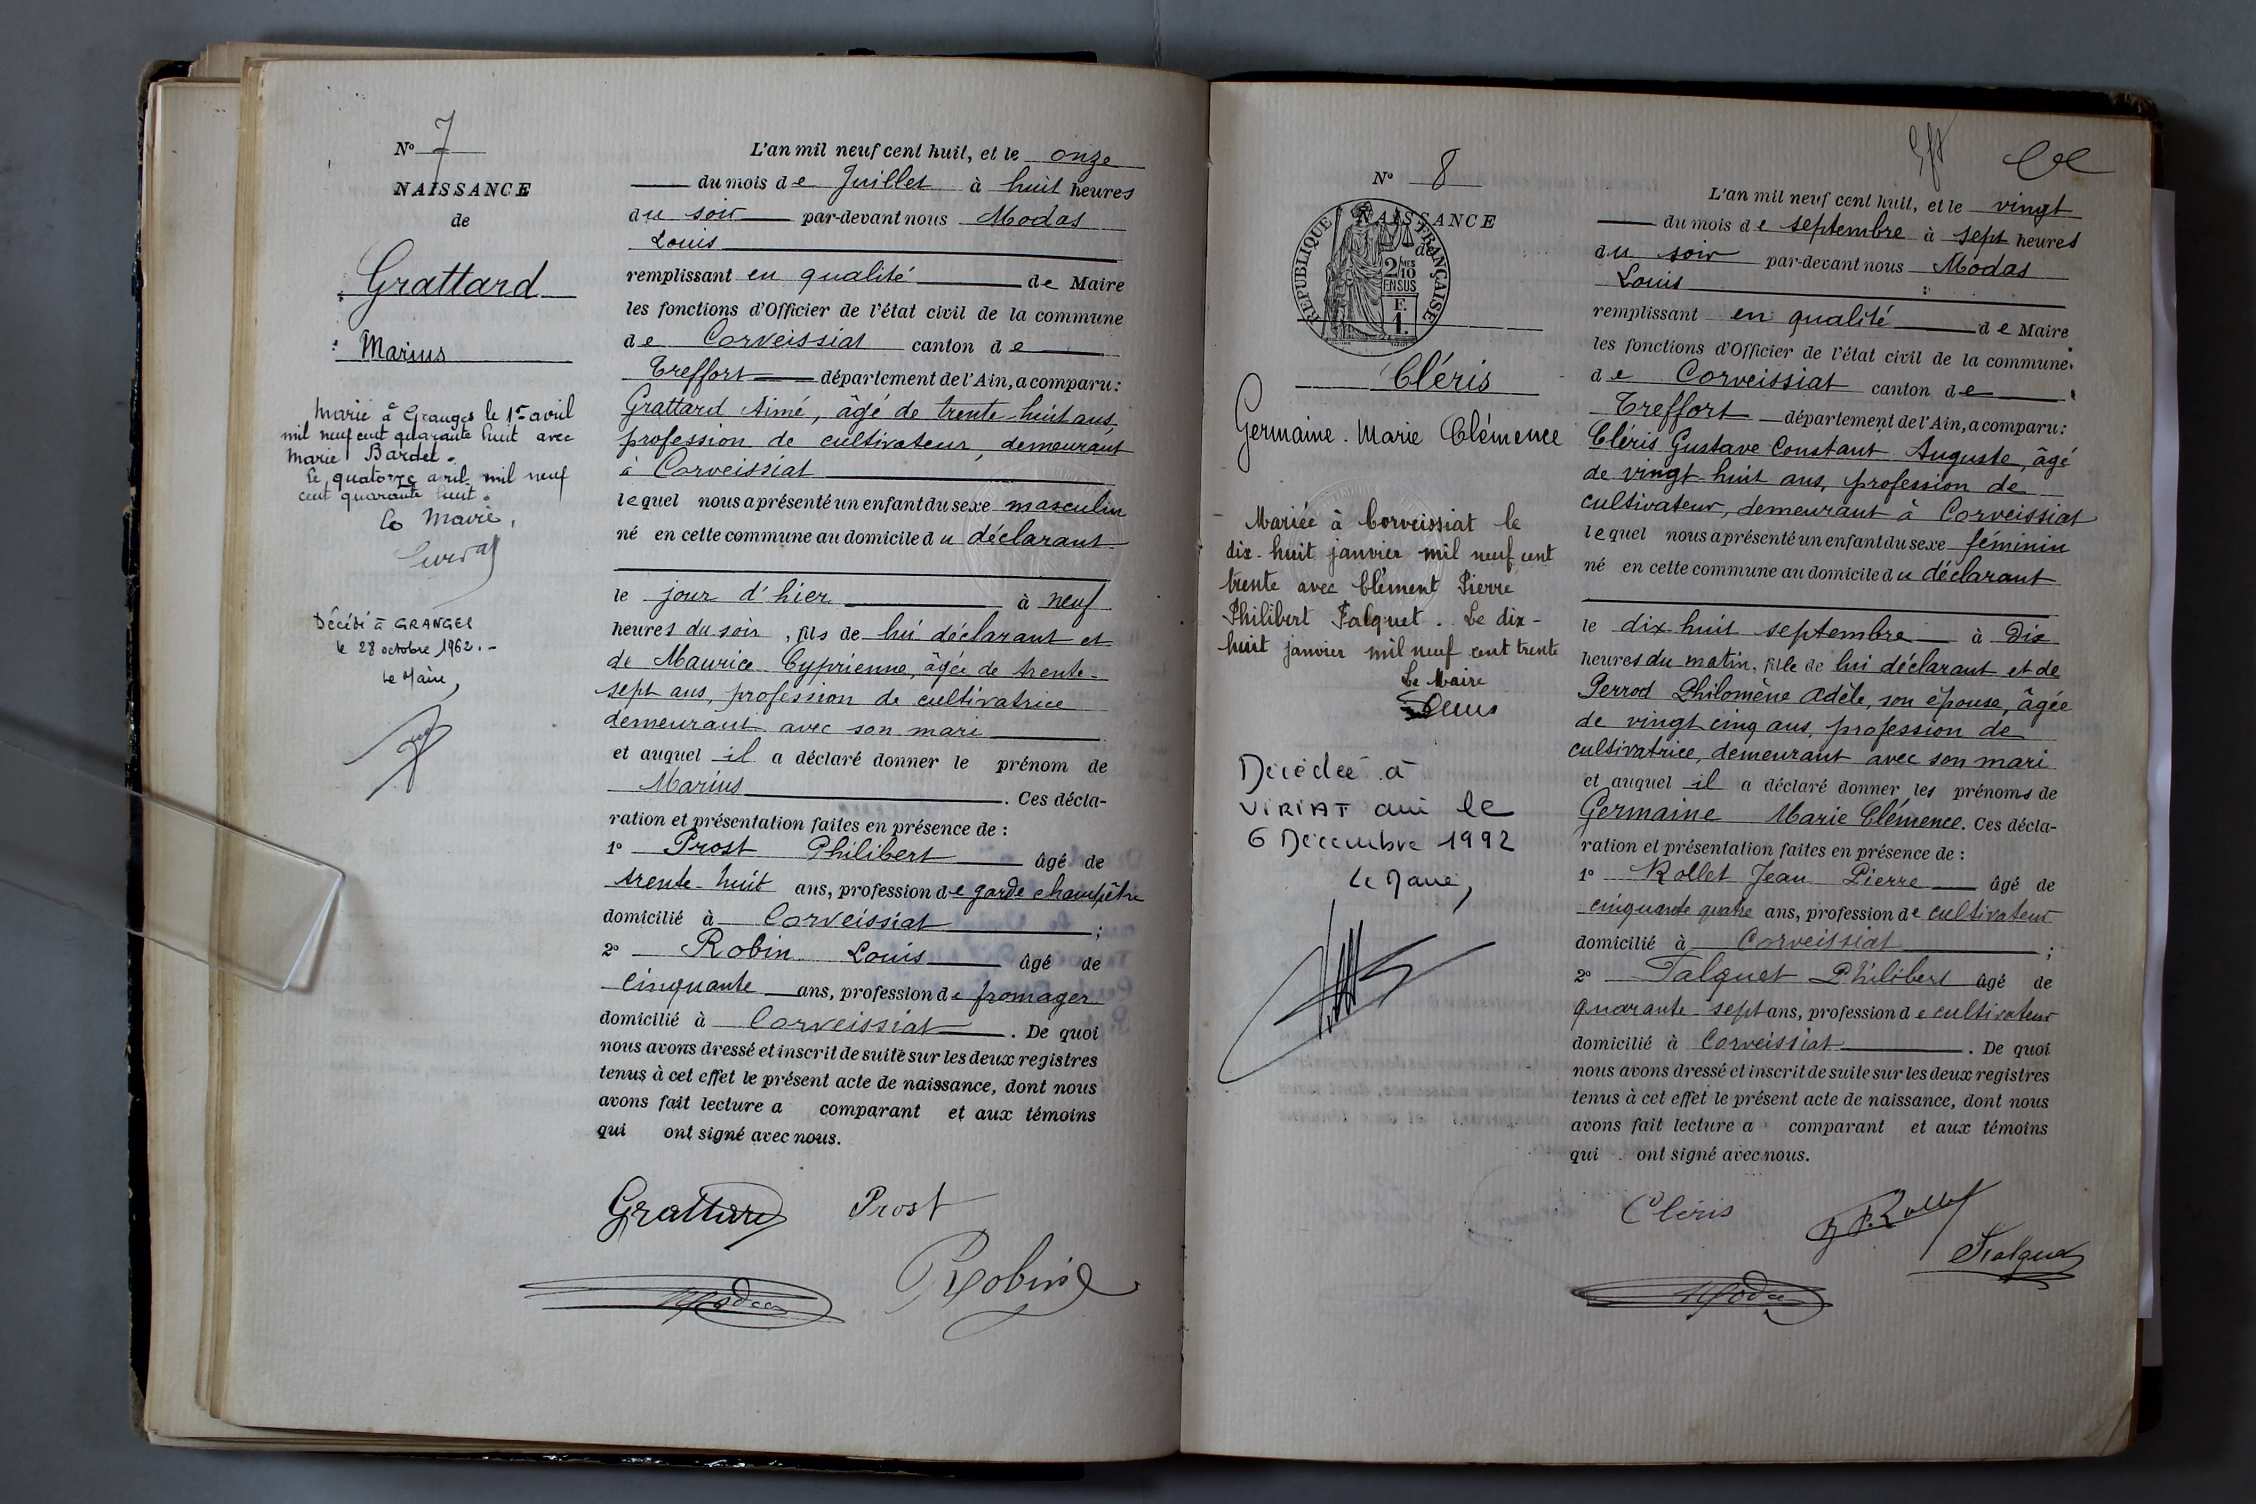 N° 7
NAISSANCE
de
Grattard
Marius
Marié à Granges le 1er avril
mil neuf cent quarante huit avec
Marie Bardet.
Le quatorze avril mil neuf
cent quarante huit.
Le Maire,
Décédé à GRANGES
le 28 octobre 1962.-
Le Maire,
L'an mil neuf cent huit, et le onze
du mois de Juillet à huit heures
du soir par-devant nous Modas
Louis
remplissant en qualité de Maire
les fonctions d'Officier de l'état civil de la commune
de Corveissiat canton de
Treffort département de l'Ain, a comparu :
Grattard Aimé, âgé de trente-huit ans,
profession de cultivateur, demeurant
à Corveissiat
lequel nous a présenté un enfant du sexe masculin
né en cette commune au domicile du déclarant
le jour d'hier à neuf
heures du soir, fils de lui déclarant et
de Maurice Cyprienne, âgée de trente-
sept ans, profession de cultivatrice
demeurant avec son mari
et auquel il a déclaré donner le prénom de
Marius. Ces décla-
ration et présentation faites en présence de :
1° Prost Philibert âgé de
trente-huit ans, profession de garde champêtre
domicilié à Corveissiat ;
2° Robin Louis âgé de
cinquante ans, profession de fromager
domicilié à Corveissiat. De quoi
nous avons dressé et inscrit de suite sur les deux registres
tenus à cet effet le présent acte de naissance, dont nous
avons fait lecture a comparant et aux témoins
qui ont signé avec nous.
Grattard Prost
Robin
Modas
N° 8
NAISSANCE
de
REPUBLIQUE FRANÇAISE
2 MES
10
EN SUS
F.
1.
Cléris
Germaine Marie Clémence
Mariée à Corveissiat le
dix-huit janvier mil neuf cent
trente avec Clément Pierre
Philibert Falquet. Le dix-
huit janvier mil neuf cent trente
Le Maire
Décédée à
VIRIAT ain le
6 Décembre 1992
Le Maire,
L'an mil neuf cent huit, et le vingt
du mois de septembre à sept heures
du soir par-devant nous Modas
Louis
remplissant en qualité de Maire
les fonctions d'Officier de l'état civil de la commune
de Corveissiat canton de
Treffort département de l'Ain, a comparu :
Cléris Gustave Constant Auguste, âgé
de vingt-huit ans, profession de
cultivateur, demeurant à Corveissiat
lequel nous a présenté un enfant du sexe féminin
né en cette commune au domicile du déclarant
le dix huit septembre à dix
heures du matin, fille de lui déclarant et de
Perrod Philomène Adèle, son épouse, âgée
de vingt cinq ans, profession de
cultivatrice, demeurant avec son mari
et auquel il a déclaré donner les prénoms de
Germaine Marie Clémence. Ces décla-
ration et présentation faites en présence de :
1° Rollet Jean Pierre âgé de
cinquante quatre ans, profession de cultivateur
domicilié à Corveissiat ;
2° Falquet Philibert âgé de
quarante-sept ans, profession de cultivateur
domicilié à Corveissiat. De quoi
nous avons dressé et inscrit de suite sur les deux registres
tenus à cet effet le présent acte de naissance, dont nous
avons fait lecture a comparant et aux témoins
qui ont signé avec nous.
Cléris J P. Rollet
Falquet
Modas